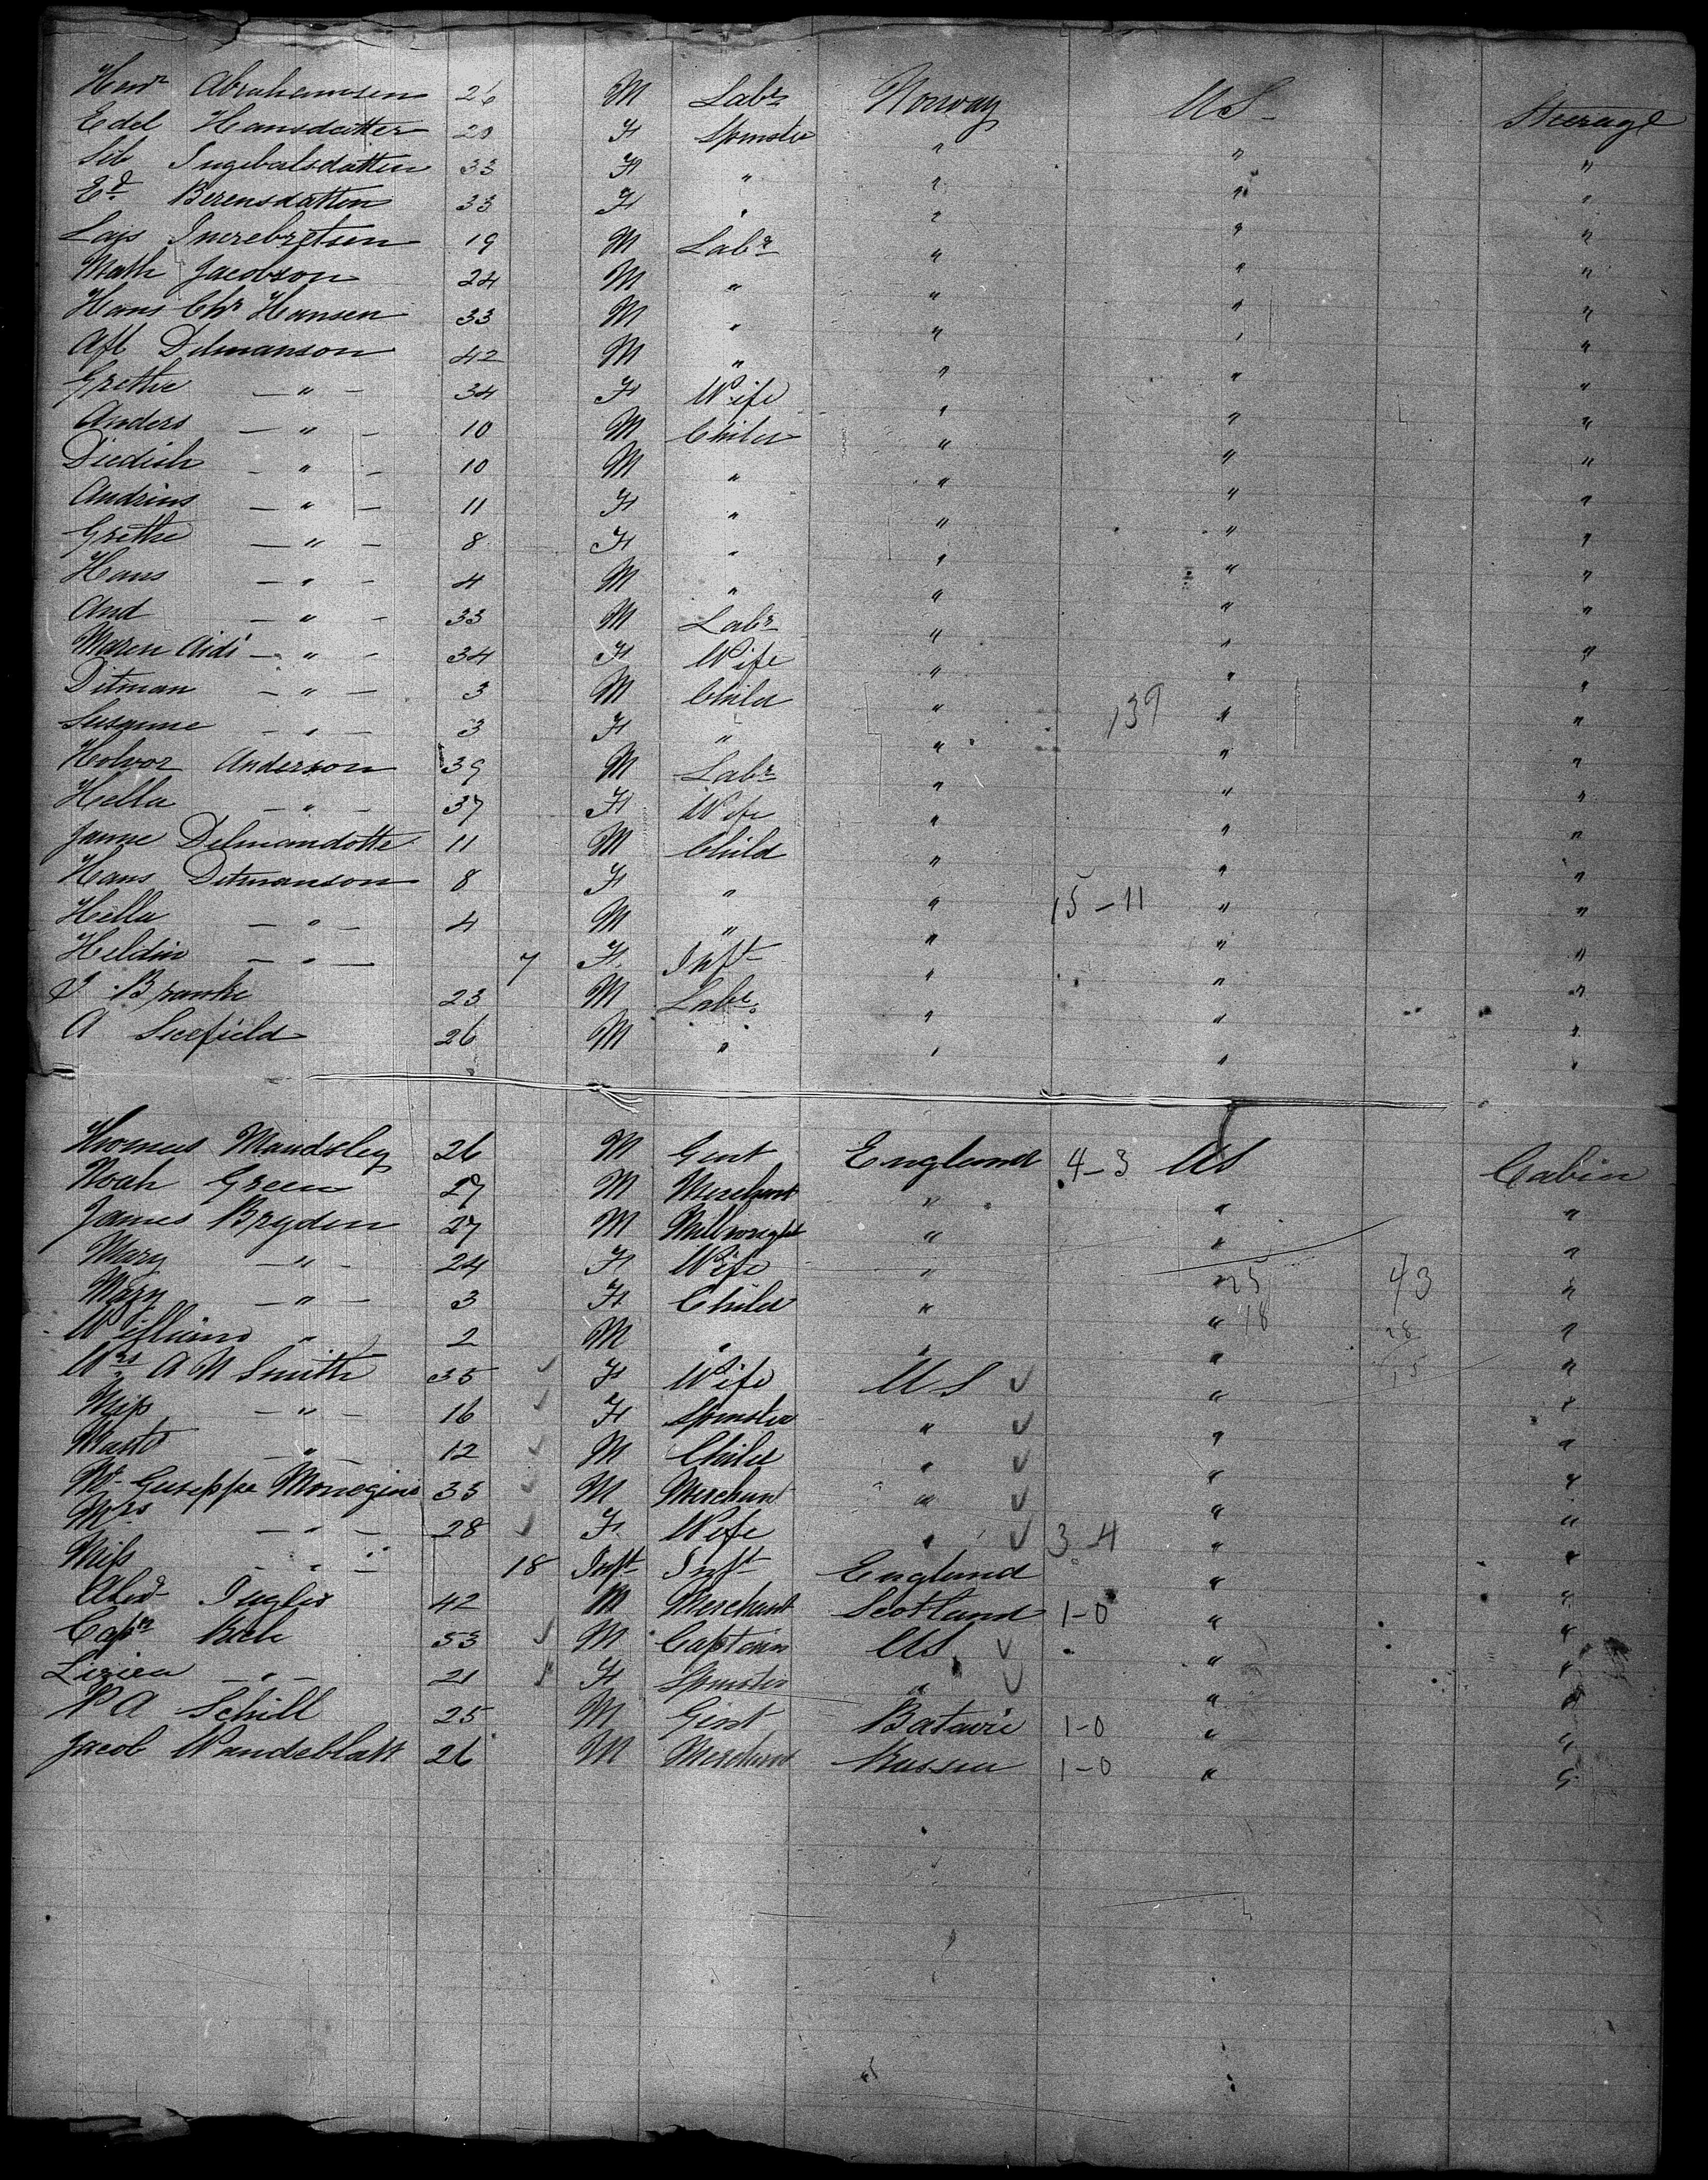 Hendr Abrahamsen 26 M Labr Norway US Steerage
Edel Hansdatter 20 F Spinster " " "
Sib Ingebalsdatten 33 F " " " "
Ed Berensdatton 33 F " " " "
Lajs Increbretsen 19 M Labr " " "
Math Jacobson 24 M " " " "
Hans Chr Hansen 33 M " " " "
Afl Ditmanson 42 M " " " "
Grethe — " — 34 F Wife " " "
Anders — " — 10 M Child " " "
Diedich — " — 10 M " " " "
Andrins — " — 11 F " " " "
Grethe — " — 8 F " " " "
Hans — " — 4 M " " " "
And — " — 33 M Labr " " "
Maren Aidi — " — 34 F Wife " " "
Ditman — " — 3 M Child " 139 " "
Susanne — " — 3 F " " " "
Holvor Anderson 39 M Labr " " "
Hella — " — 37 F Wife " " "
Janne Delmandotte 11 M Child " " "
Hans Ditmanson 8 F " " 15-11 " "
Hella — " — 4 M " " " "
Heldin — " — 7 F Inft " " "
J Brawhe 23 M Labr " " "
A Seefield 26 M " " " "
Thomas Maudsley 26 M Gent England 4-3 US Cabin
Noah Green 27 M Merchant " " "
James Bryden 27 M Millwright " " "
Mary — " — 24 F Wife " " 25 43 "
Mary — " — 3 F Child " " 18 28 "
William " 2 M " " " 15 "
Mrs A N Smith 35 F Wife US " "
Miss — " — 16 F Spinster " " "
Mastr — " — 12 M Child " " "
Mr Guseppe Monegini 35 M Merchant " " "
Mrs — " — 28 F Wife " 3-4 " "
Miss — " — 18 Inft Inft England " "
Alexr Inglis 42 M Merchant Scotland 1-0 " "
Captn 53 M Captain US " "
Lizica — " — 21 F Spinster " " "
P A Schill 25 M Gent Batavie 1-0 " "
Jacob Wandeblatt 26 M Merchant Russia 1-0 " "